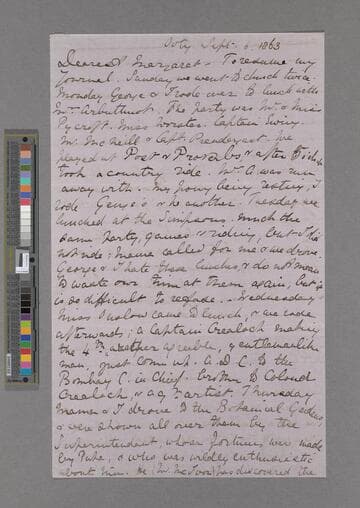 Ooty Sept. 6. 1863
Dearest Margaret - To resume my
journal. Sunday we went to church twice.
Monday George & I rode over to lunch with
Mrs Arbuthnot. The party was Mr & Miss
Pycroft. Miss Captain
Mr. McNeill & Capt. Prendergast. We
played at Poet & Proverbs & after tiffin
took a country ride. Mr A was run
away with. My pony being restive, I
rode George's & he another. Tuesday we
lunched at the Simpsons. Much the
same party, games & riding, but I did
not ride; Mama called for me & we drove.
George & I hate these lunches, & do not mean
to waste our time at them again, but it
is so difficult to refuse. - Wednesday
Miss Onslow came to lunch, & we rode
afterwards; a Captain Crealock making
the 4th, another agreeable, gentlemanlike
man, just come up. A.D.C. to the
Bombay C. in Chief, brother to Colonel
Crealock, & a gt artist. Thursday
Mama & I drove to the Botanical Gardens
& were shown all over them by the
Superintendent, whose fortunes were made
by Papa, & who was wildly enthusiastic
about him. He (Mr. McIvor) has discovered the